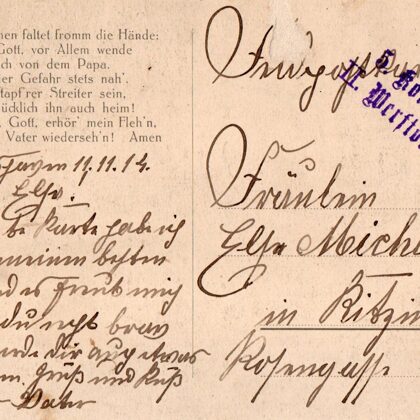 nen faltet fromm die Hände:
Gott, vor Allem wende
ich von dem Papa.
er Gefahr stets nah',
tapf'rer Streiter sein,
ücklich ihn auch heim!
Gott, erhör' mein Fleh'n,
Vater wiederseh'n! Amen
11.11.14.
Karte habe ich
meinem besten
nd es freut mich
du recht brav
dir auch etwas
Gruß und Kuß
Vater
5 Ko
II. Werftd
Fräulein
Else Miche
in Kitzin
Rosengasse